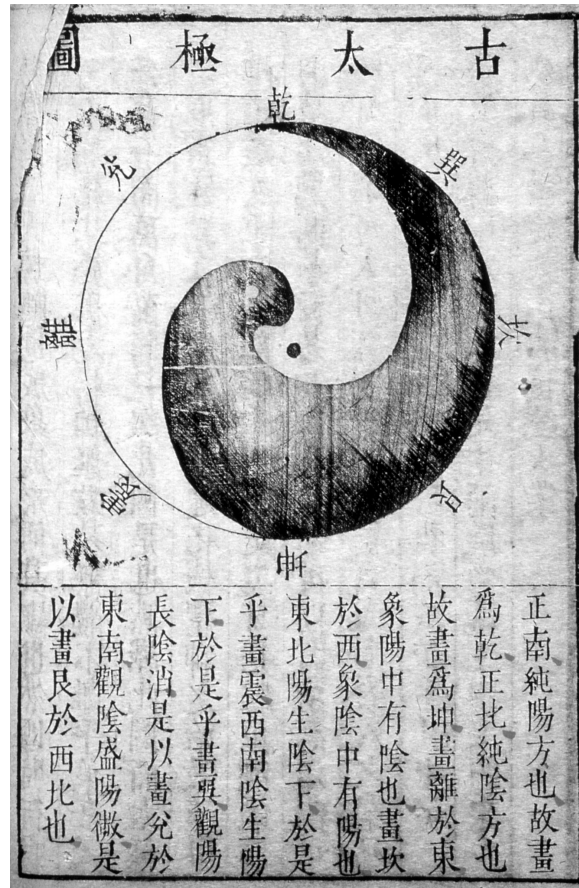 古太極圖
乾
巽
坎
艮
坤
震
離
兊
正南純陽方也故畫
爲乾正北純陰方也
故畫爲坤畫離於東
象陽中有陰也畫坎
於西象陰中有陽也
東北陽生陰下於是
乎畫震西南陰生陽
下於是乎畫巽觀陽
長陰消是以畫兊於
東南觀陰盛陽微是
以畫艮於西北也